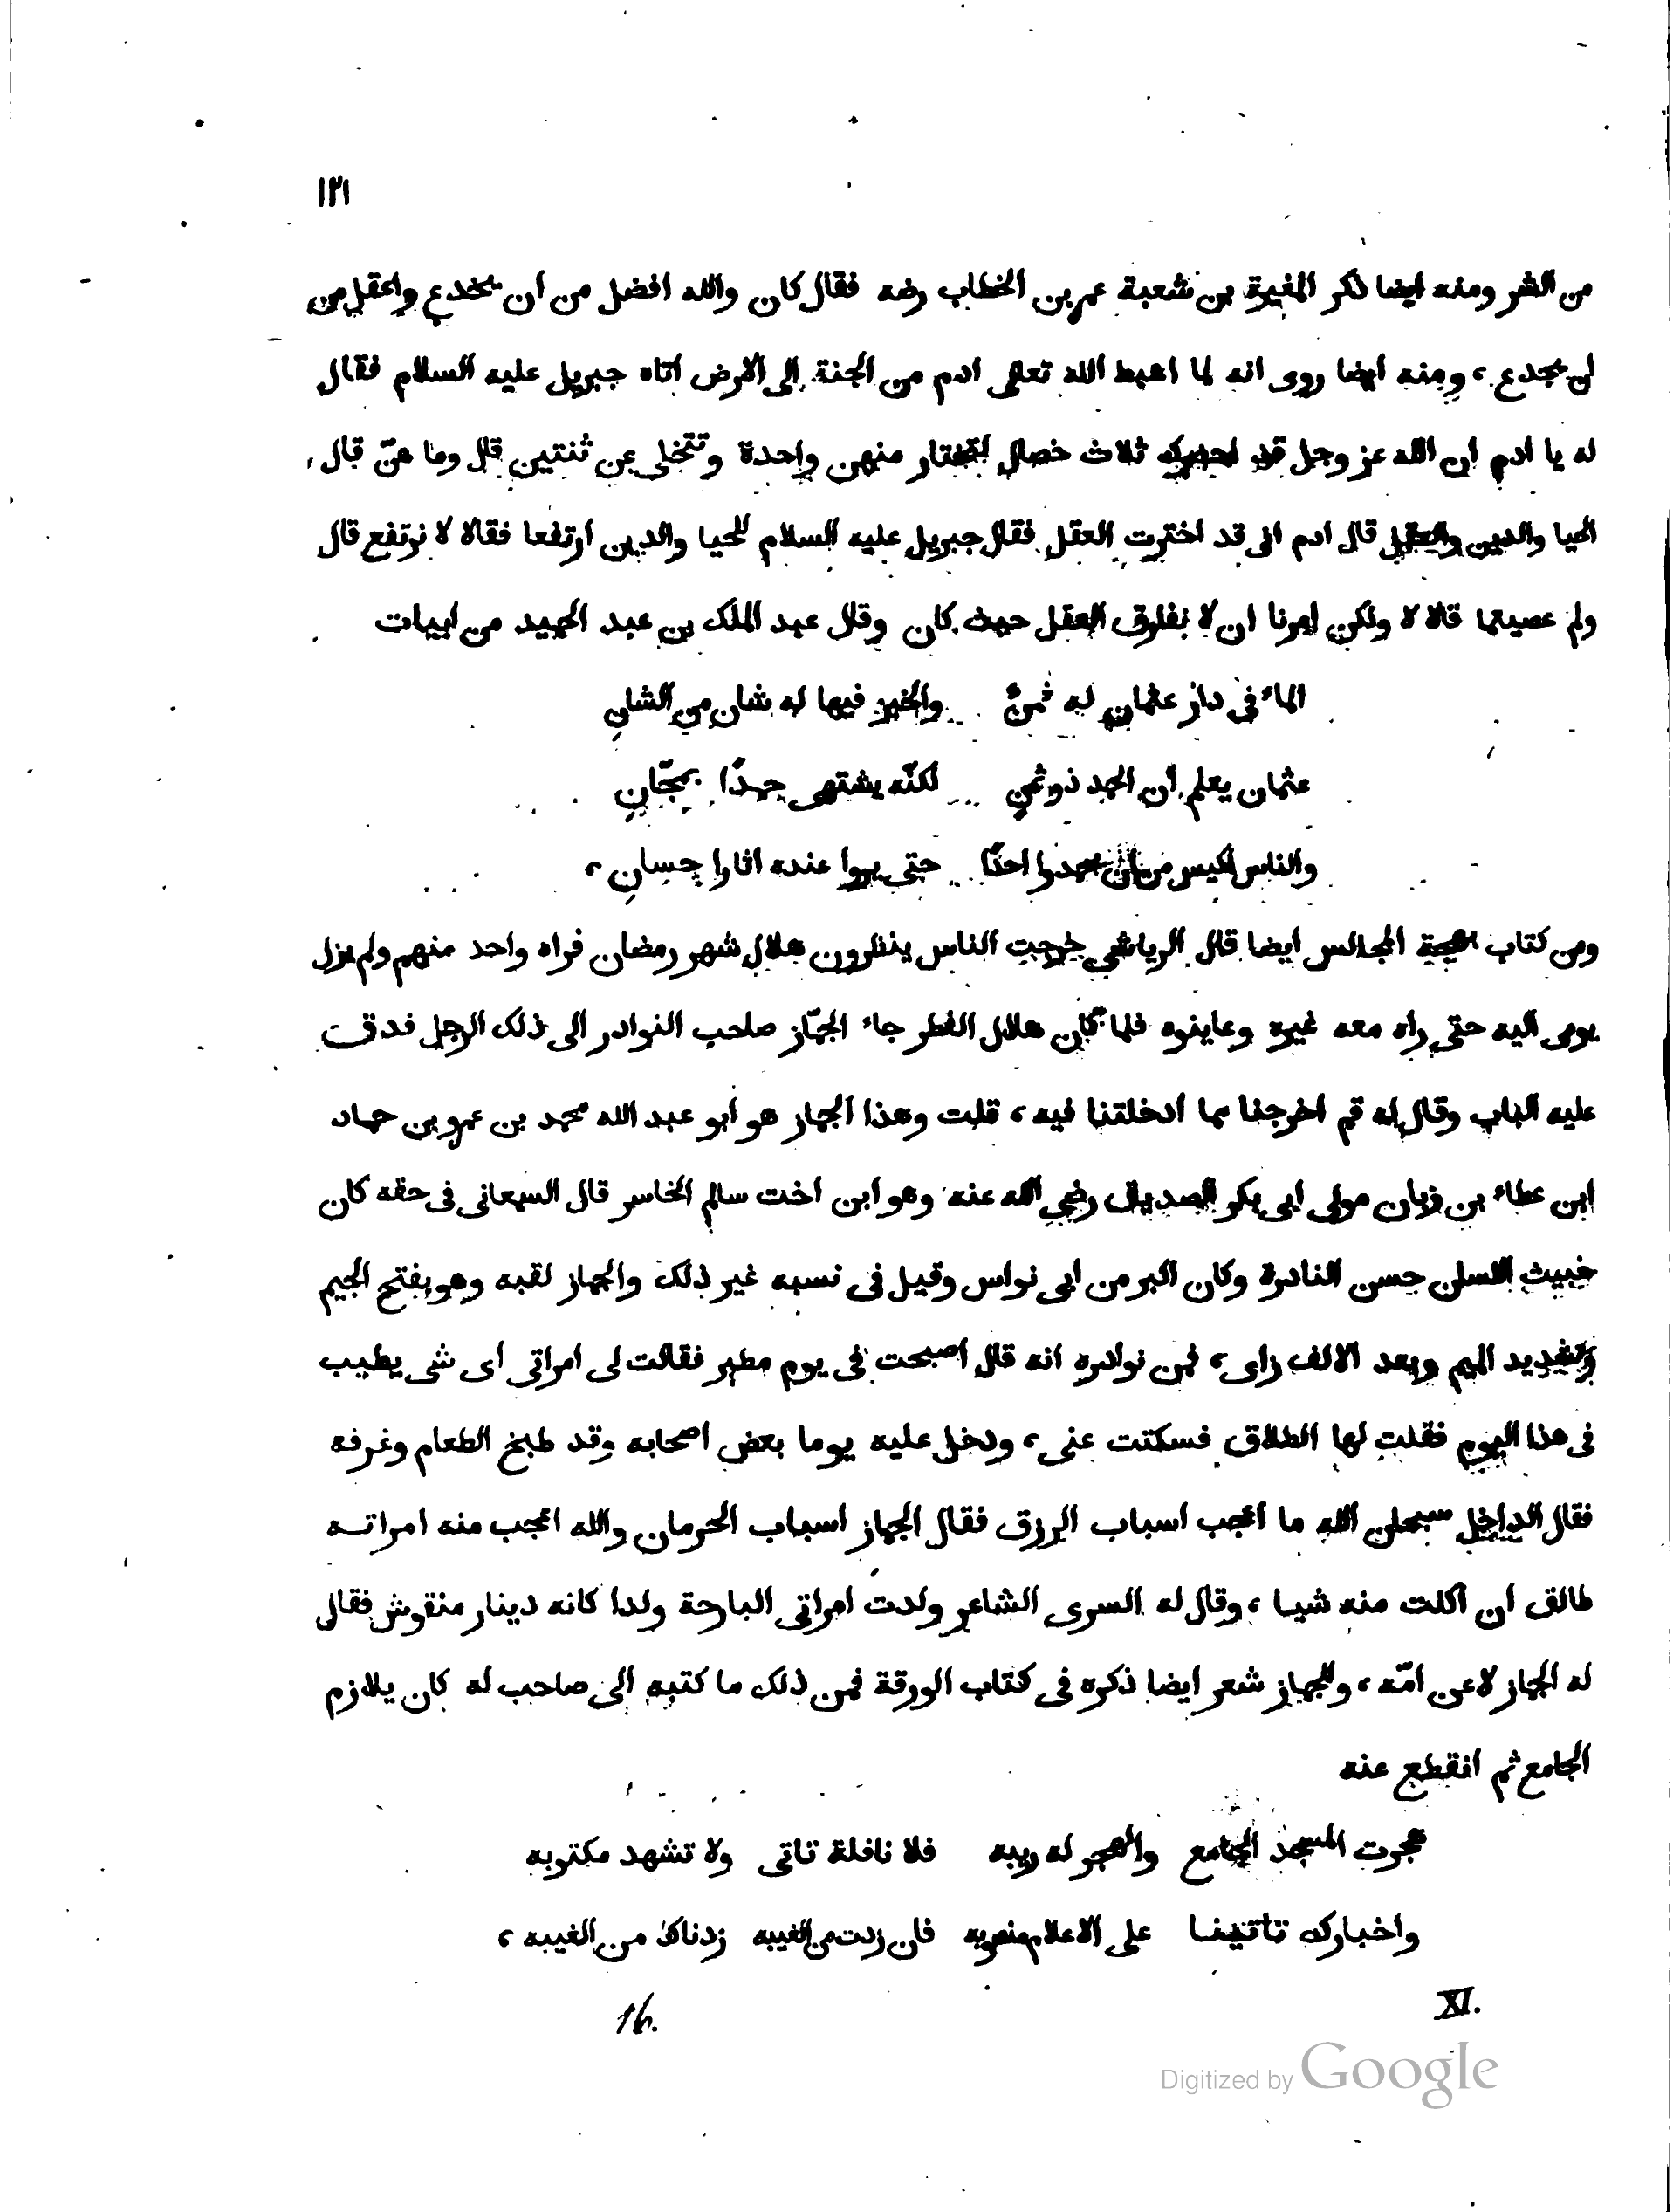 ١٢١
من الشر ومنه ايضا ذكر المغيرة بن شعبة عمر بن الخطاب رضه فقال كان والله افضل من ان يخدع واعقل من
ان يخدع ، ومنه ايضا روى انه لما اهبط الله تعالى ادم من الجنة الى الارض اتاه جبريل عليه السلام فقال
له يا ادم ان الله عز وجل قد ثلاث خصال لتختار منهن واحدة وتتخلى عن ثنتين قال وما هنّ قال
الحيا والدين والعقل قال ادم انى قد اخترت العقل فقال جبريل عليه السلام للحيا والدين ارتفعا فقالا لا نرتفع قال
ولم عصيتما قالا لا ولكن امرنا ان لا نفارق العقل حيث كان وقال عبد الملك بن عبد الحميد من ابيات
الماء فى دار عثمان له ثمنٌ والخبز فيها له شان من الشانِ
عثمان يعلم ان الحمد ذو ثمنٍ لكنّه يشتهى حمدًا بمجّانِ
والناس اكيس من ان يحمدوا احدًا حتى يروا عنده اثارا حسانِ ،
ومن كتاب بهجة المجالس ايضا قال الرياشى خرجت الناس ينظرون هلال شهر رمضان فراه واحد منهم ولم يزل
يومى اليه حتى راه معه غيره وعاينوه فلما كان هلال الفطر جاء الجمّاز صاحب النوادر الى ذلك الرجل فدق
عليه الباب وقال له قم اخرجنا مما ادخلتنا فيه ، قلت وهذا الجماز هو ابو عبد الله محمد بن عمرو بن حماد
ابن عطاء بن زبان مولى ابى بكر الصديق رضى الله عنه وهو ابن اخت سالم الخاسر قال السمعانى فى حقه كان
خبيث اللسان حسن النادرة وكان اكبر من ابى نواس وقيل فى نسبه غير ذلك والجماز لقبه وهو بفتح الجيم
وتشديد الميم وبعد الالف زاى ، فمن نوادره انه قال اصبحت فى يوم مطير فقالت لى امراتى اى شى يطيب
فى هذا اليوم فقلت لها الطلاق فسكتت عنى ، ودخل عليه يوما بعض اصحابه وقد طبخ الطعام وغرفه
فقال الداخل سبحان الله ما اعجب اسباب الرزق فقال الجماز اسباب الحرمان والله اعجب منه امراته
طالق ان اكلت منه شيا ، وقال له السرى الشاعر ولدت امراتى البارحة ولدا كانه دينار منقوش فقال
له الجماز لاعن امّه ، وللجماز شعر ايضا ذكره فى كتاب الورقة فمن ذلك ما كتبه الى صاحب له كان يلازم
الجامع ثم انقطع عنه
هجرت المسجد الجامع والهجر له ريبه فلا نافلة تاتى ولا تشهد مكتوبه
واخبارك تاتينا على الاعلام منصوبه فان زدت من الغيبه زدناك من الغيبه ،
XI. 16.
Digitized by Google